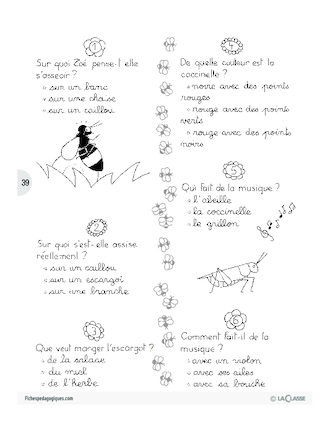 1
Sur quoi Zoé pense-t-elle
s'asseoir ?
sur un banc
sur une chaise
sur un caillou
39
2
Sur quoi s'est-elle assise
réellement ?
sur un caillou
sur un escargot
sur une branche
3
Que veut manger l'escargot ?
de la salade
du miel
de l'herbe
4
De quelle couleur est la
coccinelle ?
noire avec des points
rouges
rouge avec des points
verts
rouge avec des points
noirs
5
Qui fait de la musique ?
l'abeille
la coccinelle
le grillon
6
Comment fait-il de la
musique ?
avec un violon
avec ses ailes
avec sa bouche
Fichespedagogiques.com
© LA CLASSE